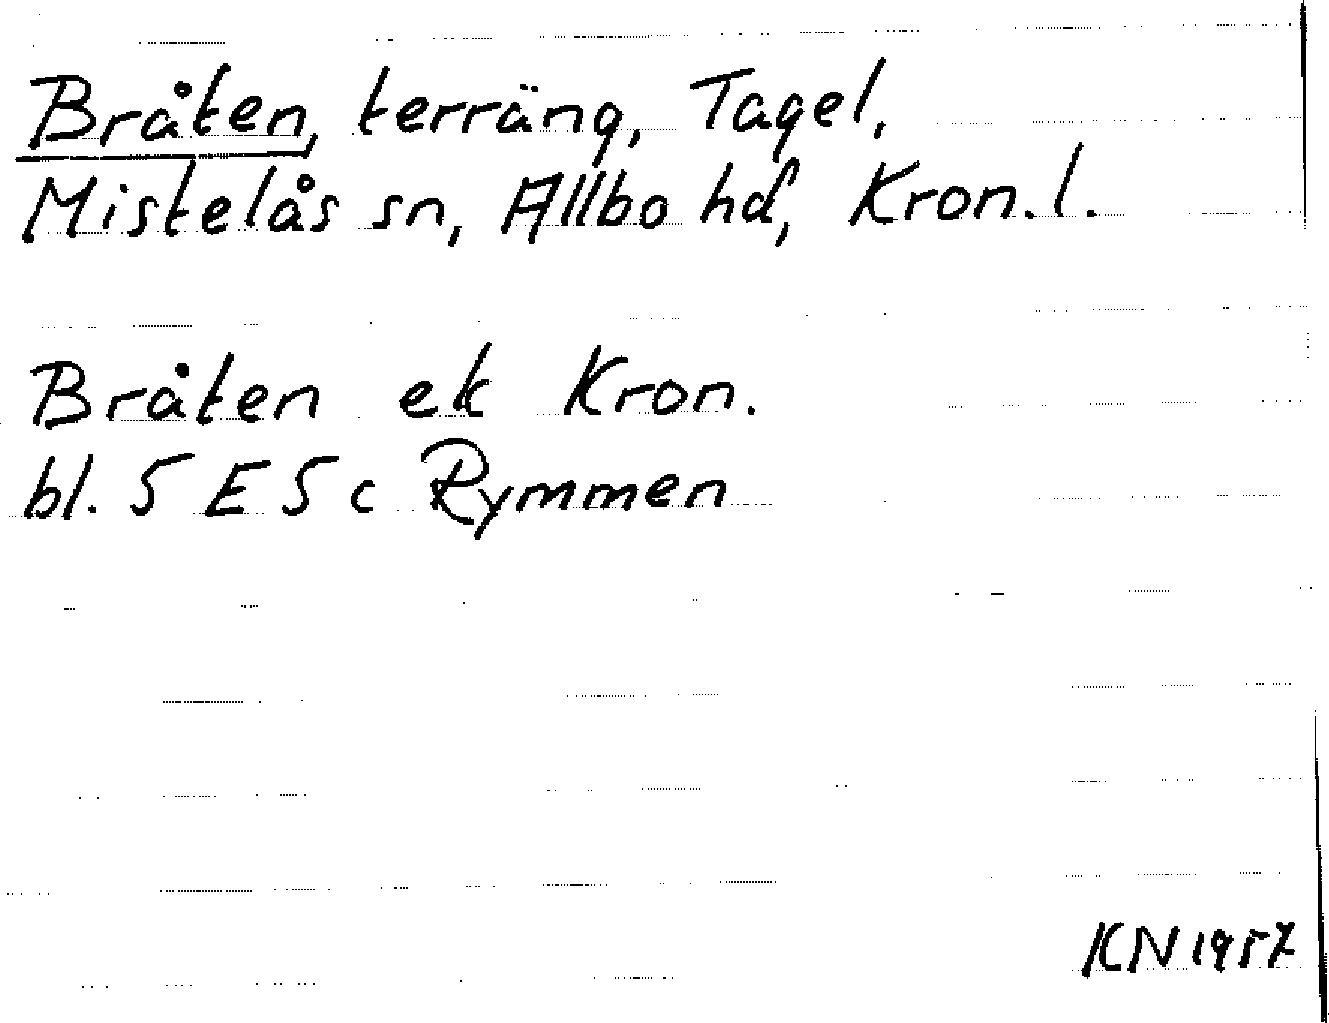 Bråten, terräng, Tagel,
Mistelås sn, Allbo hd, Kron.l.
Bråten ek Kron.
bl. 5 E 5 c Rymmen
KN 1957